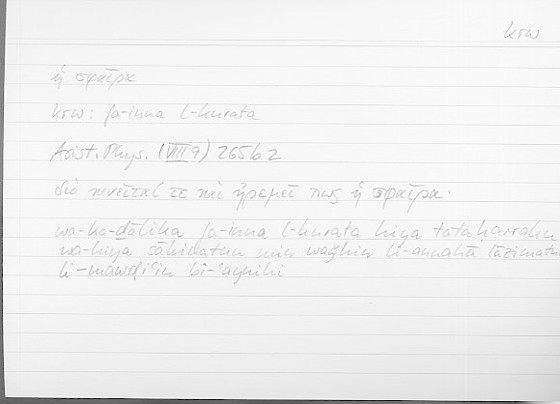 krw
ἡ σφαῖρα
krw: fa-inna l-kurata
Arist. Phys. (VIII 9) 265b2
διὸ κινεῖταί τε καὶ ἠρεμεῖ πως ἡ σφαῖρα·
wa-ka-ḏālika fa-inna l-kurata hiya tataḥarraku
wa-hiya sākinatun min waǧhin li-annahā lāzimatun
li-mawḍiʿin bi-ʿaynihi